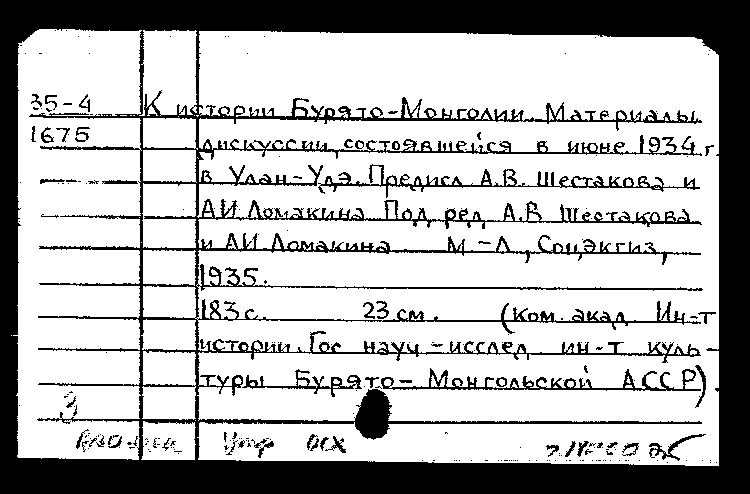 35-4 К истории Бурято-Монголии. Материалы
1675 дискуссии, состоявшейся в июне 1934 г.
в Улан-Удэ. Предисл А.В. Шестакова и
А.И Ломакина Под ред А.В Шестакова
и А.И Ломакина М-Л, Соцэкгиз,
1935.
183 с. 23 см. (Ком. акад Ин-т
истории. Гос науч-исслед ин-т куль-
туры Бурято-Монгольской АССР).
3